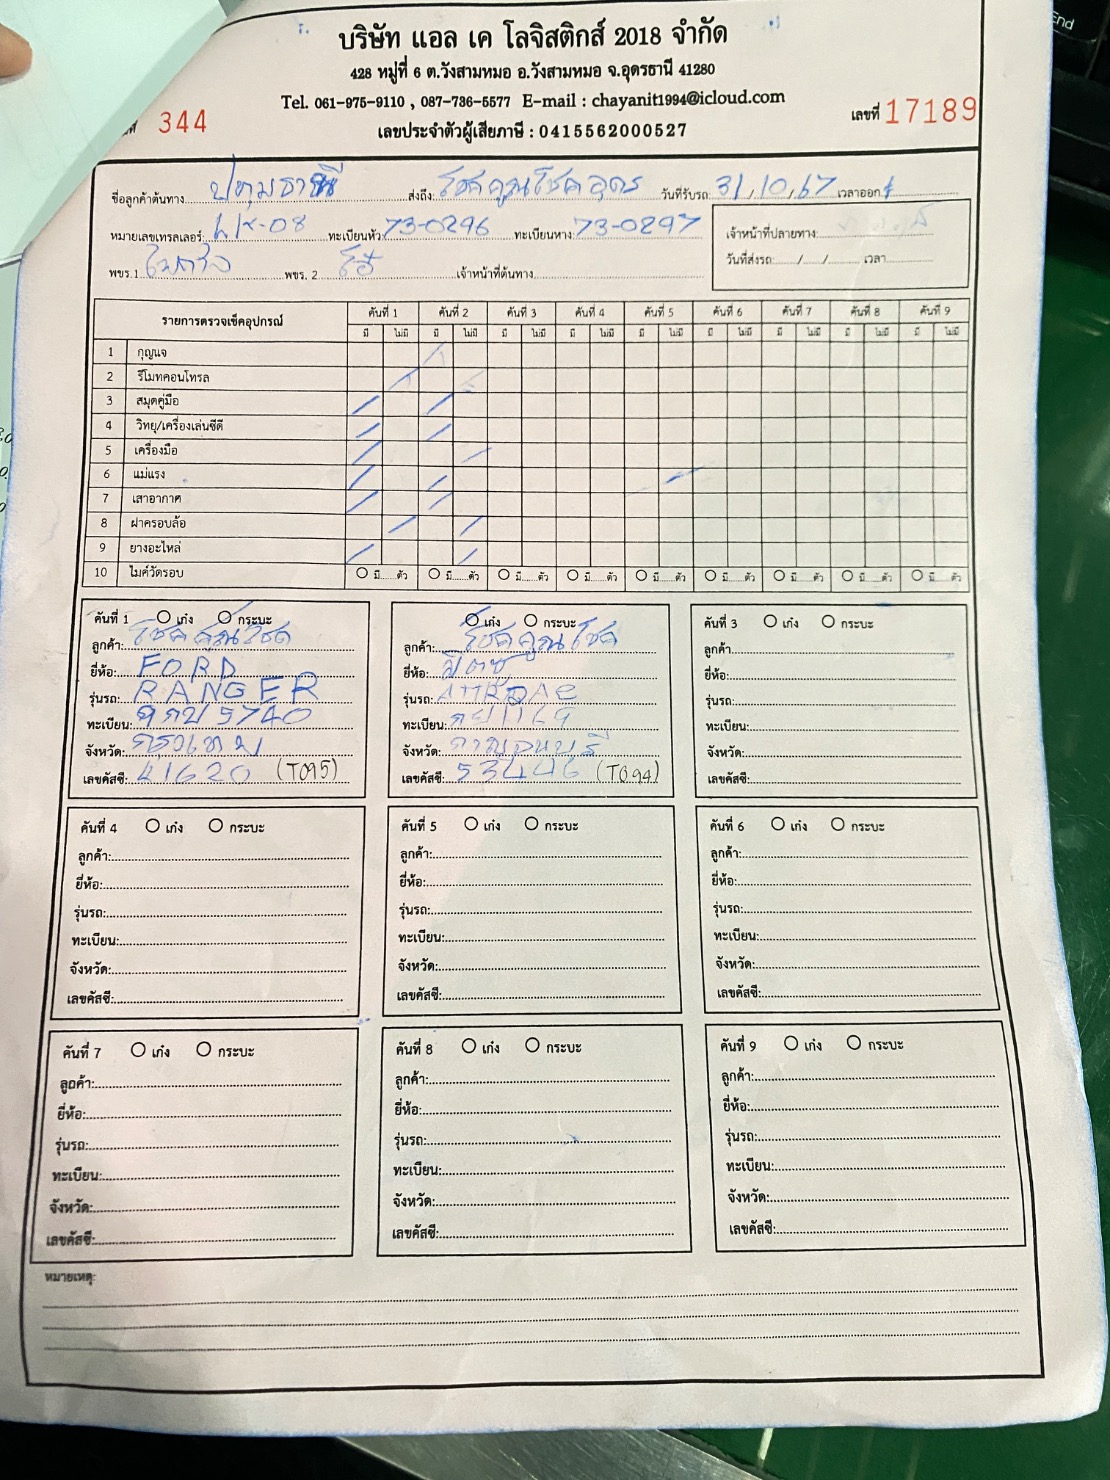 บริษัท แอล เค โลจิสติกส์ 2018 จำกัด
428 หมู่ที่ 6 ต.วังสามหมอ อ.วังสามหมอ จ.อุดรธานี 41280
Tel. 061-975-9110 , 087-736-5577 E-mail : chayanit1994@icloud.com
344 เลขที่ 17189
เลขประจำตัวผู้เสียภาษี : 0415562000527
ชื่อลูกค้าต้นทาง ปทุมธานี ส่งถึง: โชคคูณโชคอุดร วันที่รับรถ 31/10/67 เวลาออก
หมายเลขเทรลเลอร์: ทะเบียนหัว 73-0296 ทะเบียนหาง: 73-0297 เจ้าหน้าที่ปลายทาง:
พขร.1 พขร. 2 เจ้าหน้าที่ต้นทาง วันที่ส่งรถ: / / เวลา
รายการตรวจเช็คอุปกรณ์ คันที่ 1 คันที่ 2 คันที่ 3 คันที่ 4 คันที่ 5 คันที่ 6 คันที่ 7 คันที่ 8 คันที่ 9
มี ไม่มี มี ไม่มี มี ไม่มี มี ไม่มี มี ไม่มี มี ไม่มี มี ไม่มี มี ไม่มี มี ไม่มี
1 กุญแจ
2 รีโมทคอนโทรล
3 สมุดคู่มือ
4 วิทยุ/เครื่องเล่นซีดี
5 เครื่องมือ
6 แม่แรง
7 เสาอากาศ
8 ฝาครอบล้อ
9 ยางอะไหล่
10 ไมค์วัดรอบ มี ตัว มี ตัว มี ตัว มี ตัว มี ตัว มี ตัว มี ตัว มี ตัว มี ตัว
คันที่ 1 เก๋ง กระบะ
ลูกค้า: โชคคูณโชค
ยี่ห้อ: FORD
รุ่นรถ: RANGER
ทะเบียน: 5740
จังหวัด: กรุงเทพ
เลขคัสซี: 41620 (T095)
เก๋ง กระบะ
ลูกค้า: โชคคูณโชค
ยี่ห้อ: มิตซู
รุ่นรถ:
ทะเบียน: 1169
จังหวัด: กาญจนบุรี
เลขคัสซี: 53446 (T094)
คันที่ 3 เก๋ง กระบะ
ลูกค้า
ยี่ห้อ:
รุ่นรถ:
ทะเบียน:
จังหวัด:
เลขคัสซี:
คันที่ 4 เก๋ง กระบะ
ลูกค้า:
ยี่ห้อ:
รุ่นรถ:
ทะเบียน:
จังหวัด:
เลขคัสซี:
คันที่ 5 เก๋ง กระบะ
ลูกค้า:
ยี่ห้อ:
รุ่นรถ:
ทะเบียน:
จังหวัด:
เลขคัสซี:
คันที่ 6 เก๋ง กระบะ
ลูกค้า:
ยี่ห้อ:
รุ่นรถ:
ทะเบียน:
จังหวัด:
เลขคัสซี:
คันที่ 7 เก๋ง กระบะ
ลูกค้า:
ยี่ห้อ:
รุ่นรถ:
ทะเบียน:
จังหวัด:
เลขคัสซี:
คันที่ 8 เก๋ง กระบะ
ลูกค้า:
ยี่ห้อ:
รุ่นรถ:
ทะเบียน:
จังหวัด:
เลขคัสซี:
คันที่ 9 เก๋ง กระบะ
ลูกค้า:
ยี่ห้อ:
รุ่นรถ:
ทะเบียน:
จังหวัด:
เลขคัสซี:
หมายเหตุ:
End